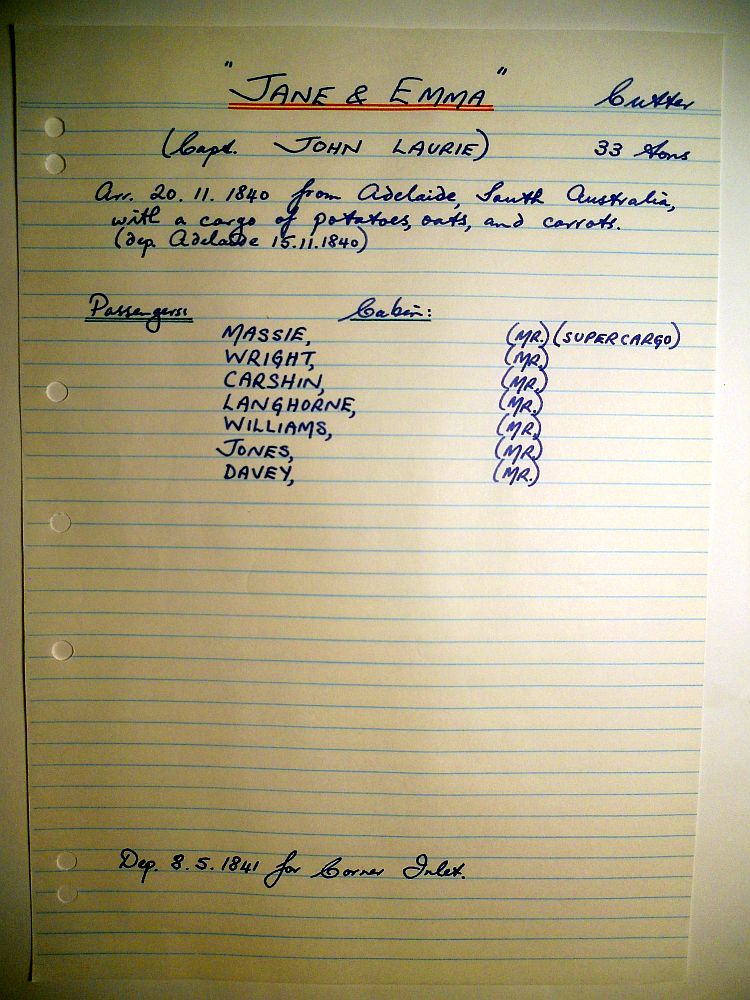 "JANE & EMMA" Cutter
(Capt. JOHN LAURIE) 33 tons
Arr. 20.11.1840 from Adelaide, South Australia,
with a cargo of potatoes, oats, and carrots.
(dep. Adelaide 15.11.1840)
Passengers: Cabin:
MASSIE, (MR.) (SUPERCARGO)
WRIGHT, (MR.)
CARSHIN, (MR.)
LANGHORNE, (MR.)
WILLIAMS, (MR.)
JONES, (MR.)
DAVEY, (MR.)
Dep. 8.5.1841 for Corner Inlet.